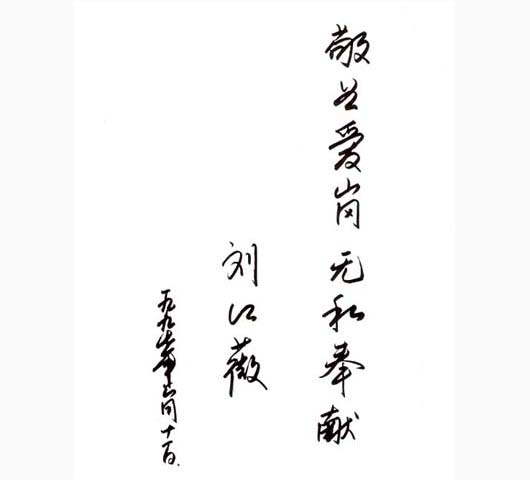 敬业爱岗无私奉献
刘江薇
一九九七年六月十一日